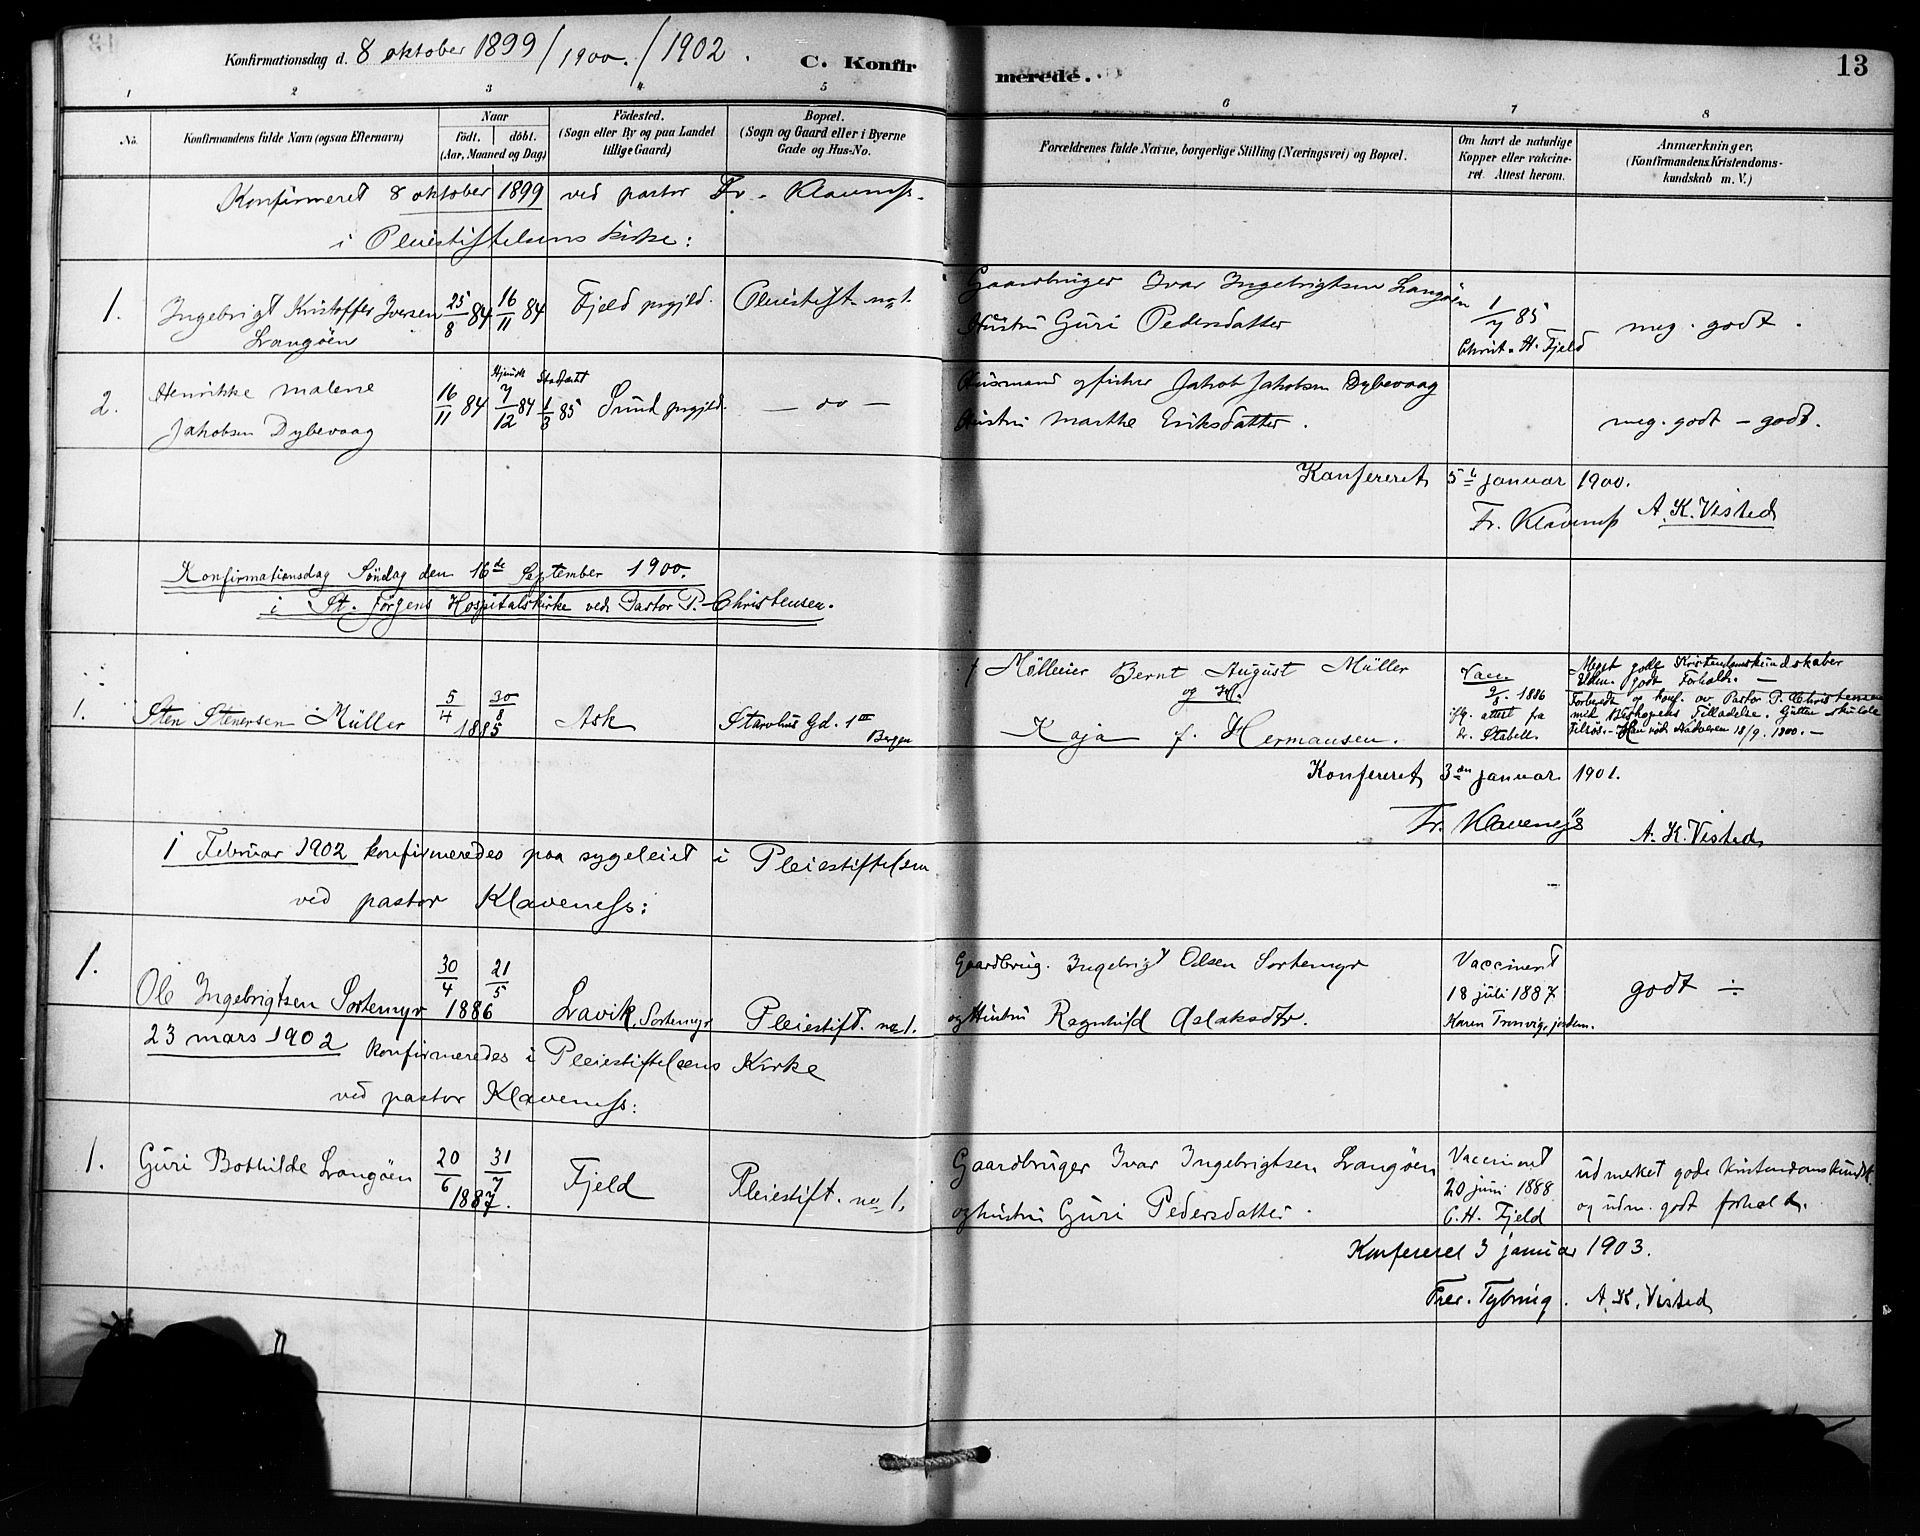 Konfirmationsdag d. 8 oktober 1899 / 1900. / 1902.
C. Konfirmerede.
13
1 2 3 4 5 6 7 8
No.
Konfirmandens fulde Navn (ogsaa Efternavn)
Naar
födt. döbt.
(Aar, Maaned og Dag)
Födested.
(Sogn eller By og paa Landet
tillige Gaard)
Bopæl.
(Sogn og Gaard eller i Byerne
Gade og Hus-No.
Forældrenes fulde Navne, borgerlige Stilling (Næringsvei) og Bopæl.
Om havt de naturlige
Kopper eller vakcine-
ret. Attest herom.
Anmærkninger.
(Konfirmandens Kristendoms-
kundskab m. V.)
Konfirmeret 8 oktober 1899 ved pastor Fr. Klaveness.
i Pleiestiftelsens kirke:
1. Ingebrigt Kristoffer Iversen
Langöen
25/8 84 16/11 84 Fjeld prgjld. Pleiestift. no 1.
Gaardbruger Ivar Ingebrigtsen Langöen
Hustru Guri Pedersdatter
1/7 85
Christ. H. Fjeld
meg. godt.
2. Henrikke Malene
Jakobsen Dybevaag
16/11 84 Hjemdt 7/12 84 Stadfæstet 1/3 85 Sund prgjld. — do —
Husmand og fisker Jakob Jakobsen Dybevaag
Hustru Marthe Eriksdatter.
meg. godt – godt.
Konfereret 5te januar 1900.
Fr. Klaveness A. K. Visted
Konfirmationsdag Söndag den 16de September 1900.
i St. Jörgens Hospitalskirke ved Pastor P. Christensen.
1. Sten Stenersen Müller
5/4 30/8
1885
Ask
Starvhus Gd. 1
Bergen
f Mölleier Bernt August Müller
og H.
Kaja f. Hermansen.
Vacc.
2/8 1886
iflg. attest fra
dr. Stabell.
Meget gode Kristendomskundskaber
Udm. godt Forhold. —
Forberedt og konf. av Pastor P. Christensen
med Biskopens Tilladelse. Gutten skulde
tilsös. – Han nöd Nadveren 18/9. 1900. –
Konfereret 3den januar 1901.
Fr. Klaveness A. K. Visted
1 Februar 1902 konfirmeredes paa sygeleiet i Pleiestiftelsen
ved pastor Klaveness:
1. Ole Ingebrigtsen Sortemyr
30/4 21/5
1886
Lavik, Sortemyr
Pleiestift. no 1.
Gaardbrug. Ingebrigt Olsen Sortemyr
og Hustru Ragnhild Aslaksdtr.
Vaccineret
18 juli 1887
Karen Tronvig, jordm.
godt ÷
23 mars 1902 konfirmeredes i Pleiestiftelsens Kirke
ved pastor Klaveness:
1. Guri Bothilde Langöen
20/6 31/7
1887.
Fjeld
Pleiestift. no 1.
Gaardbruger Ivar Ingebrigtsen Langöen
og hustru Guri Pedersdatter.
Vaccineret
20 juni 1888
C. H. Fjeld
udmerket gode kristendomskundsk.
og udm. godt forhold.
Konfereret 3 januar 1903.
Fred. Tybring. A. K. Visted